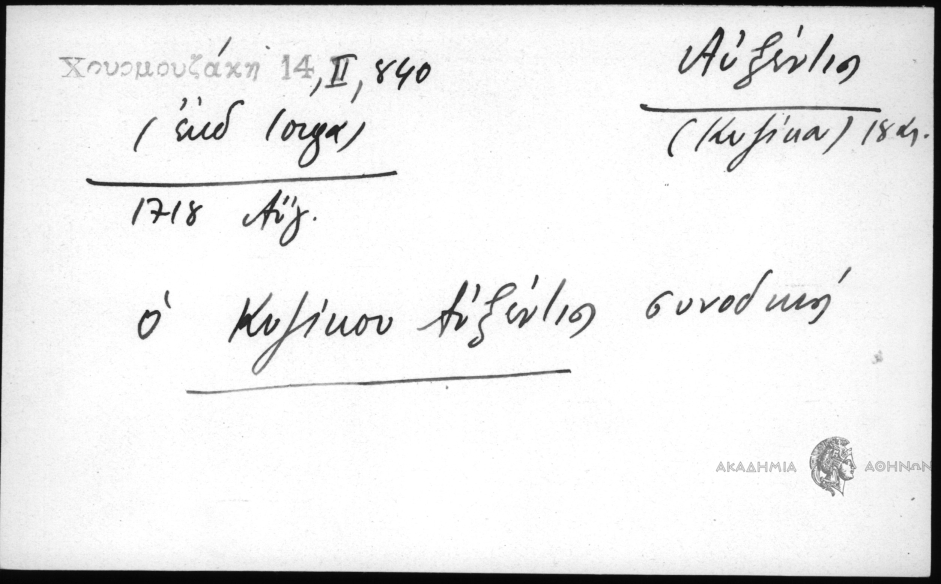 Χουρμουζάκη 14, II, 840
Αὐξέντιος
(ἐκδ
(Κυζίκου) 18 αι.
1718 Αὔγ.
ὁ Κυζίκου Αὐξέντιος συνοδικός
ΑΚΑΔΗΜΙΑ ΑΘΗΝΩΝ